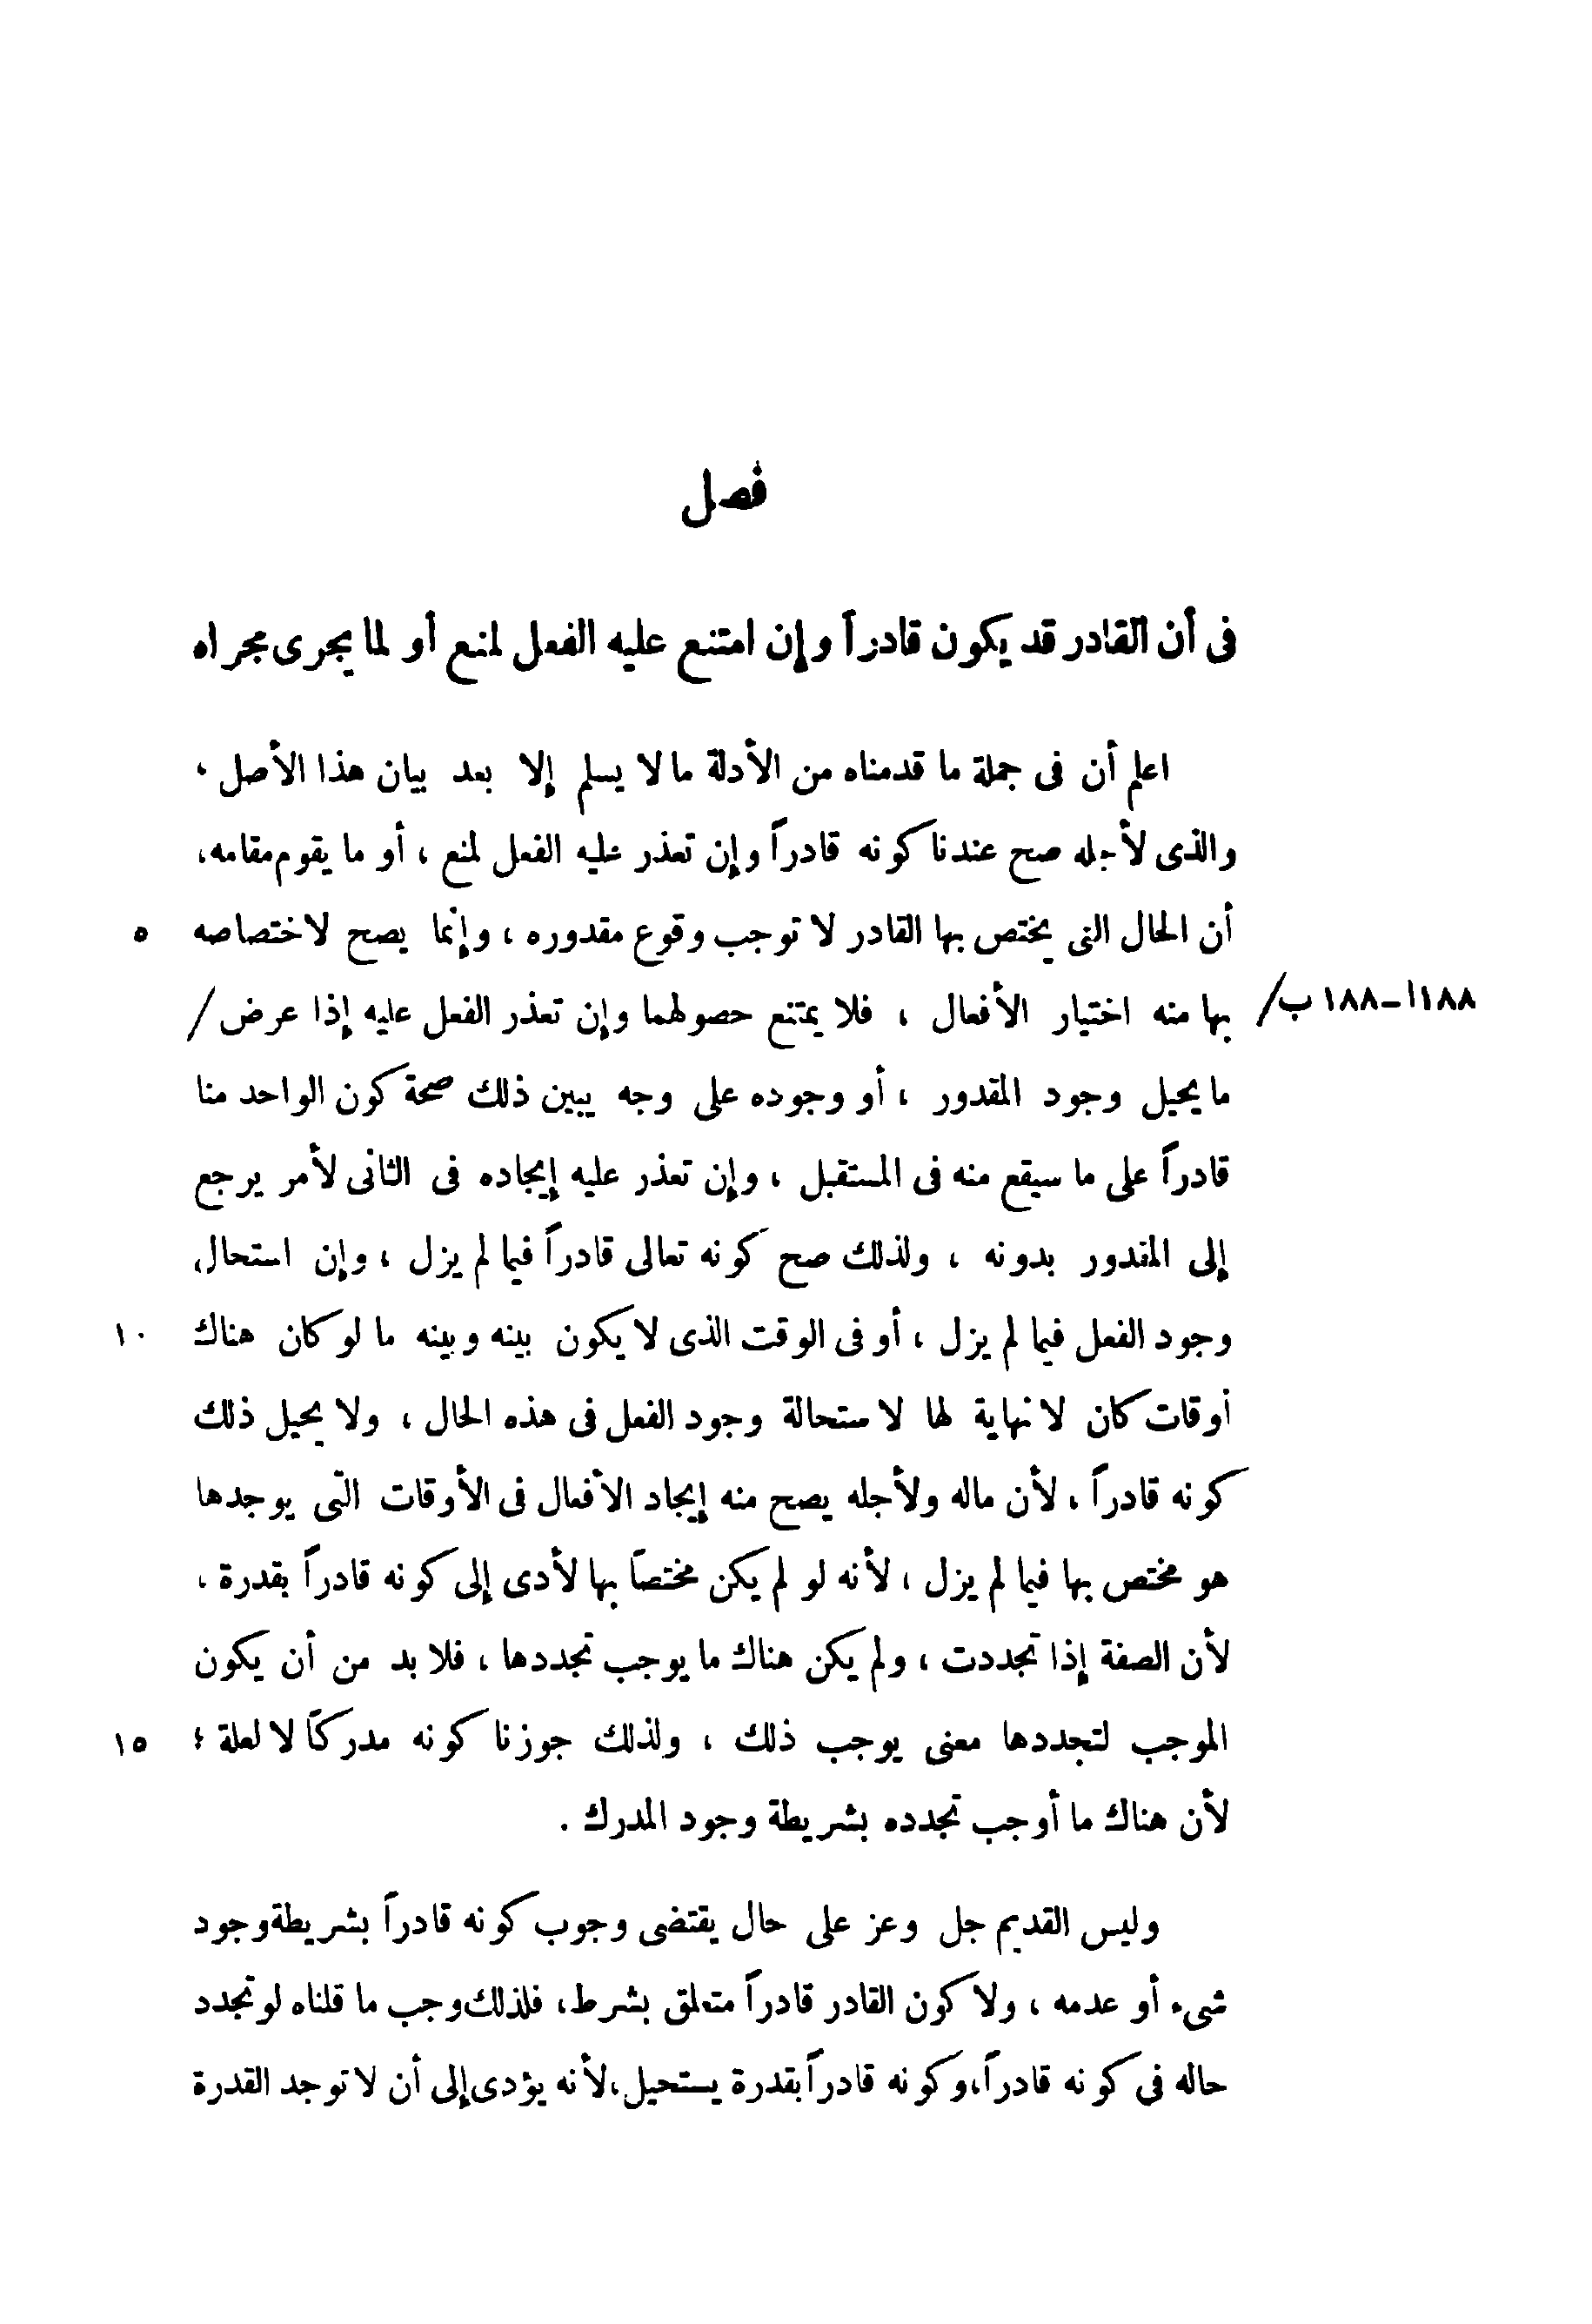 فصل
فى أن القادر قد يكون قادراً وإن امتنع عليه الفعل لمنع أو لما يجرى مجراه
اعلم أن فى جملة ما قدمناه من الأدلة ما لا يسلم إلا بعد بيان هذا الأصل ،
والذى لأجله صح عندنا كونه قادراً وإن تعذر عليه الفعل لمنع ، أو ما يقوم مقامه،
أن الحال التى يختص بها القادر لا توجب وقوع مقدوره ، وإنما يصح لاختصاصه ٥
١٨٨ا-١٨٨ ب/ بها منه اختيار الأفعال ، فلا يمتنع حصولهما وإن تعذر الفعل عليه إذا عرض /
ما يحيل وجود المقدور ، أو وجوده على وجه يبين ذلك صحة كون الواحد منا
قادراً على ما سيقع منه فى المستقبل ، وإن تعذر عليه إيجاده فى الثانى لأمر يرجع
إلى المقدور بدونه ، ولذلك صح كونه تعالى قادراً فيما لم يزل ، وإن استحال
وجود الفعل فيما لم يزل ، أو فى الوقت الذى لا يكون بينه وبينه ما لو كان هناك ١٠
أوقات كان لا نهاية لها لاستحالة وجود الفعل فى هذه الحال ، ولا يحيل ذلك
كونه قادراً ، لأن ماله ولأجله يصح منه إيجاد الأفعال فى الأوقات التى يوجدها
هو مختص بها فيما لم يزل ، لأنه لو لم يكن مختصاً بها لأدى إلى كونه قادراً بقدرة ،
لأن الصفة إذا تجددت ، ولم يكن هناك ما يوجب تجددها ، فلا بد من أن يكون
الموجب لتجددها معنى يوجب ذلك ، ولذلك جوزنا كونه مدركاً لا لعلة ؛ ١٥
لأن هناك ما أوجب تجدده بشريطة وجود المدرك .
وليس القديم جل وعز على حال يقتضى وجوب كونه قادراً بشريطة وجود
شىء أو عدمه ، ولا كون القادر قادراً متعلق بشرط، فلذلك وجب ما قلناه لو تجدد
حاله فى كونه قادراً،وكونه قادراً بقدرة يستحيل،لأنه يؤدى إلى أن لا توجد القدرة